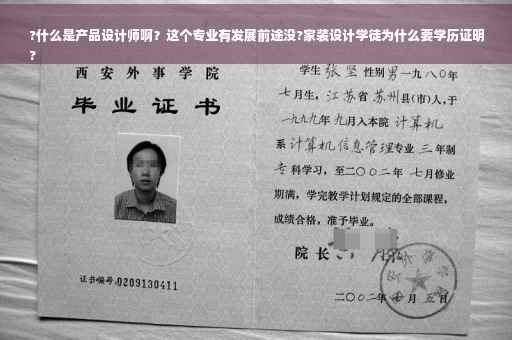 ?什么是产品设计师啊？这个专业有发展前途没?家装设计学徒为什么要学历证明
?
西安外事学院
毕业证书
证书编号:0209130411
学生张坚性别男一九八〇年
七月生，江苏省苏州县(市)人,于
一九九九年九月入本院计算机
系计算机信息管理专业三年制
专科学习，至二〇〇二年七月修业
期满，学完教学计划规定的全部课程，
成绩合格，准予毕业。
院长
二〇〇二年 月五日